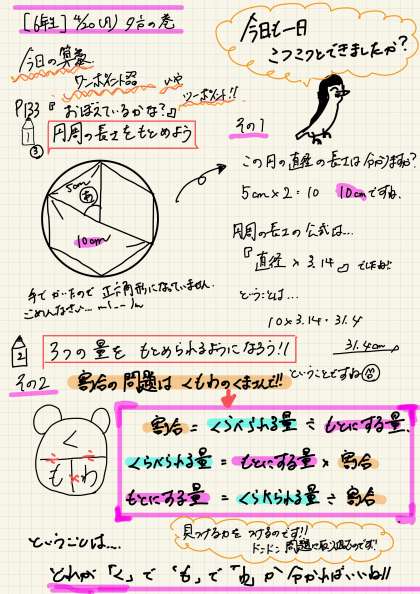 [6年生] 4/20(月) 夕方の巻
今日も一日
コツコツとできましたか?
今日の算数
ワンポイント
いや
ツーポイント!!
P133『おぼえているかな?』
その1
1
③
円周の長さをもとめよう
5cm
あ
10cm
この円の直径の長さは分かりますか?
5cm×2=10 10cmですね。
円周の長さの公式は…
『直径×3.14』でしたね!
ということは…
10×3.14=31.4
31.4cm
手でかいたので正六角形になっていません。
ごめんなさい…m(__)m
2
3つの量をもとめられるようになろう!!
ということですね
その2
割合の問題はくもわのくまさんで!!
く
も×わ
割合=くらべられる量÷もとにする量
くらべられる量=もとにする量×割合
もとにする量=くらべられる量÷割合
見つける力をつけるのです!!
ドンドン問題に取り組むのです!
ということは…
どれが「く」で「も」で「わ」か分かればいいね!!